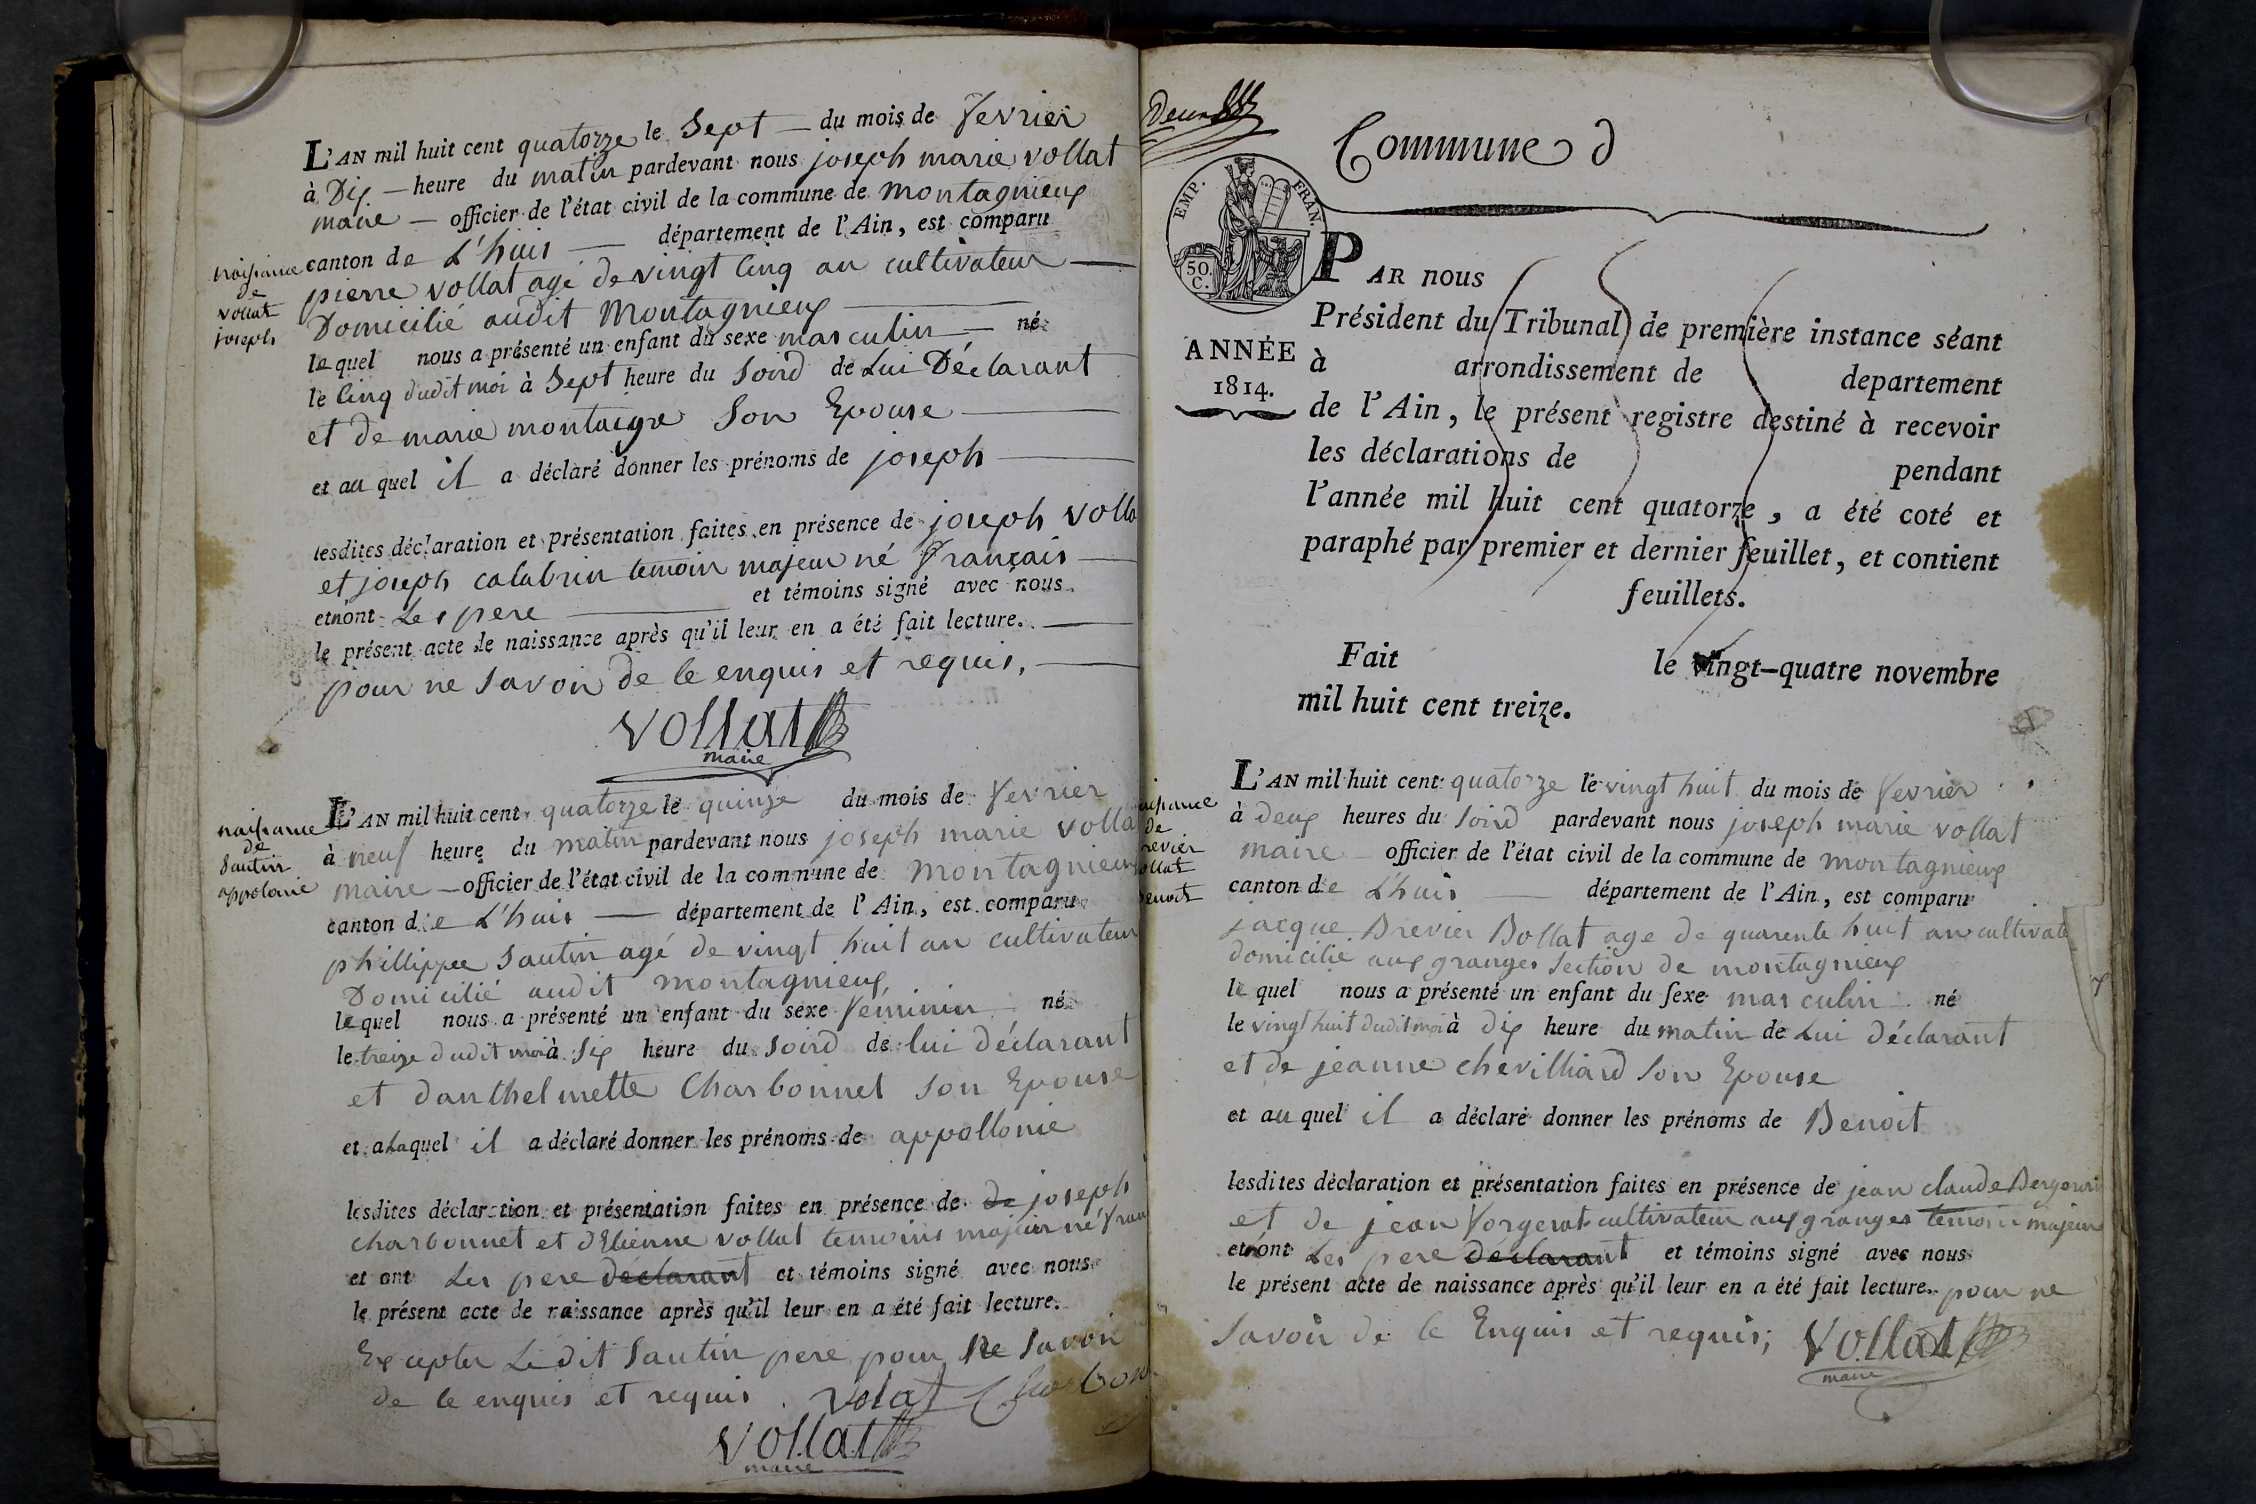 L'AN mil huit cent quatorze le Sept du mois de fevrier
à Dix heure du matin pardevant nous joseph marie vollat
maire officier de l'état civil de la commune de montagnieux
canton de L'huis département de l'Ain, est comparu
pierre vollat agé de vingt cinq an cultivateur
Domicilié audit Montagnieux
le quel nous a présenté un enfant du sexe masculin né
le cinq dudit moi à Sept heure du Soird de Lui Déclarant
et de marie montaigre Son Epouse
et au quel il a déclaré donner les prénoms de joseph
lesdites déclaration et présentation faites en présence de joseph volla
et joseph calabrin temoin majeur né français
et n'ont Les pere et témoins signé avec nous
le présent acte de naissance après qu'il leur en a été fait lecture.
pour ne savoir de ce enquis et requis,
vollat
maire
naissance
de
vollat
joseph
L'AN mil huit cent quatorze le quinze du mois de fevrier
à neuf heure du matin pardevant nous joseph marie volla
maire officier de l'état civil de la commune de montagnieux
canton de L'huis département de l'Ain, est comparu
phillippe Sautin agé de vingt huit an cultivateur
Domicilié audit montagnieux
le quel nous a présenté un enfant du sexe féminin né
le treize dudit moi à Six heure du Soird de lui déclarant
et danthelmette Charbonnet son Epouse
et a Laquel il a déclaré donner les prénoms de appollonie
lesdites déclaration et présentation faites en présence de de joseph
charbonnet et dEtienne vollat temoins majeur né fran
et ont Les pere declarant et témoins signé avec nous
le présent acte de naissance après qu'il leur en a été fait lecture.
Excepter Ledit Sautin pere pour Ne Savoir
de ce enquis et requis. volat Charbon
vollat
maire
naissance
de
Sautin
appolonie
deux
Commune d
EMP. FRAN.
50
C.
ANNÉE
1814.
PAR nous
Président du Tribunal de première instance séant
à arrondissement de departement
de l'Ain, le présent registre destiné à recevoir
les déclarations de pendant
l'année mil huit cent quatorze, a été coté et
paraphé par premier et dernier feuillet, et contient
feuillets.
Fait le vingt-quatre novembre
mil huit cent treize.
L'AN mil huit cent quatorze le vingt huit du mois de fevrier
à deux heures du Soird pardevant nous joseph marie vollat
maire officier de l'état civil de la commune de montagnieux
canton de L'huis département de l'Ain, est comparu
jacque Brevier Bollat age de quarente huit an cultivate
domicilié aux granges Section de montagnieux
le quel nous a présenté un enfant du sexe masculin né
le vingt huit dudit moi à dix heure du matin de Lui déclarant
et de jeanne chevilliard Son Epouse
et au quel il a déclaré donner les prénoms de Benoit
lesdites déclaration et présentation faites en présence de jean claude
et de jean Vorgerat cultivateur aux granges temoin majeur
et n'ont Les pere déclarant et témoins signé avec nous
le présent acte de naissance après qu'il leur en a été fait lecture. pour ne
Savoir de ce Enquis et requis; vollat
maire
de
vollat
Benoit